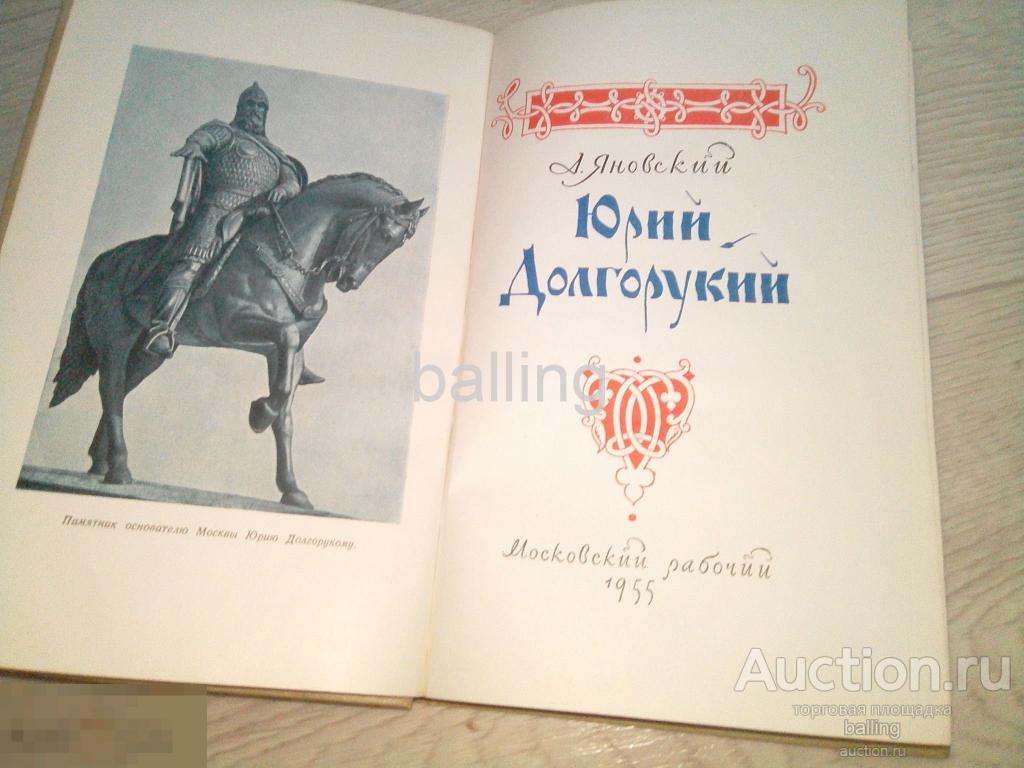 Памятник основателю Москвы Юрию Долгорукому.
А. Яновский
Юрий
Долгорукий
Московский рабочий
1955
balling
Auction.ru
торговая площадка
balling
auction.ru